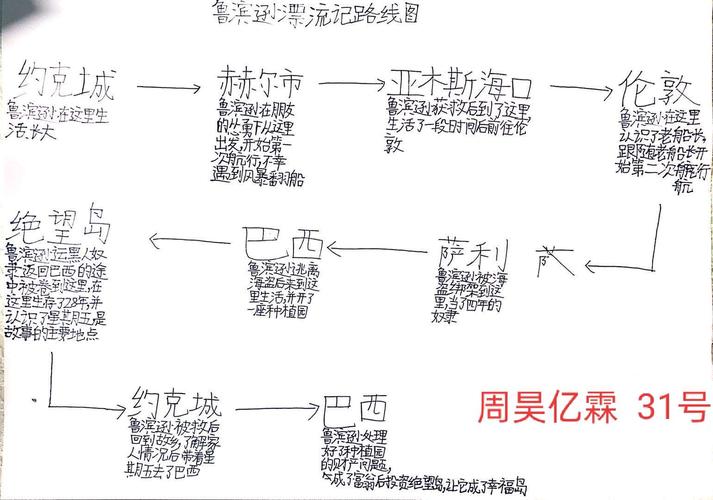 鲁滨逊漂流记路线图
约克城
鲁滨逊在这里生
活长大
赫尔市
鲁滨逊在朋友
的怂恿下从这里
出发,开始第一
次航行,不幸
遇到风暴翻船
亚木斯海口
鲁滨逊获救后到了这里
生活了一段时间后前往伦
敦
伦敦
鲁滨逊在这里
认识了老船长,
跟随老船长开
始第二次航行
航
萨利
鲁滨逊被海
盗绑架到这
里,当了四年的
奴隶
巴西
鲁滨逊逃离
海盗后来到这
里生活,并开了
一座种植园
绝望岛
鲁滨逊运黑人奴
隶返回巴西的途
中被卷到这里,在
这里生存了28年,并
认识了星期五,是
故事的主要地点
约克城
鲁滨逊被救后
回到故乡,了解家
人情况后带着星
期五去了巴西
巴西
鲁滨逊处理
好了种植园
的财产问题,
成了富翁后投资绝望岛,让它成了幸福岛
周昊亿霖 31号